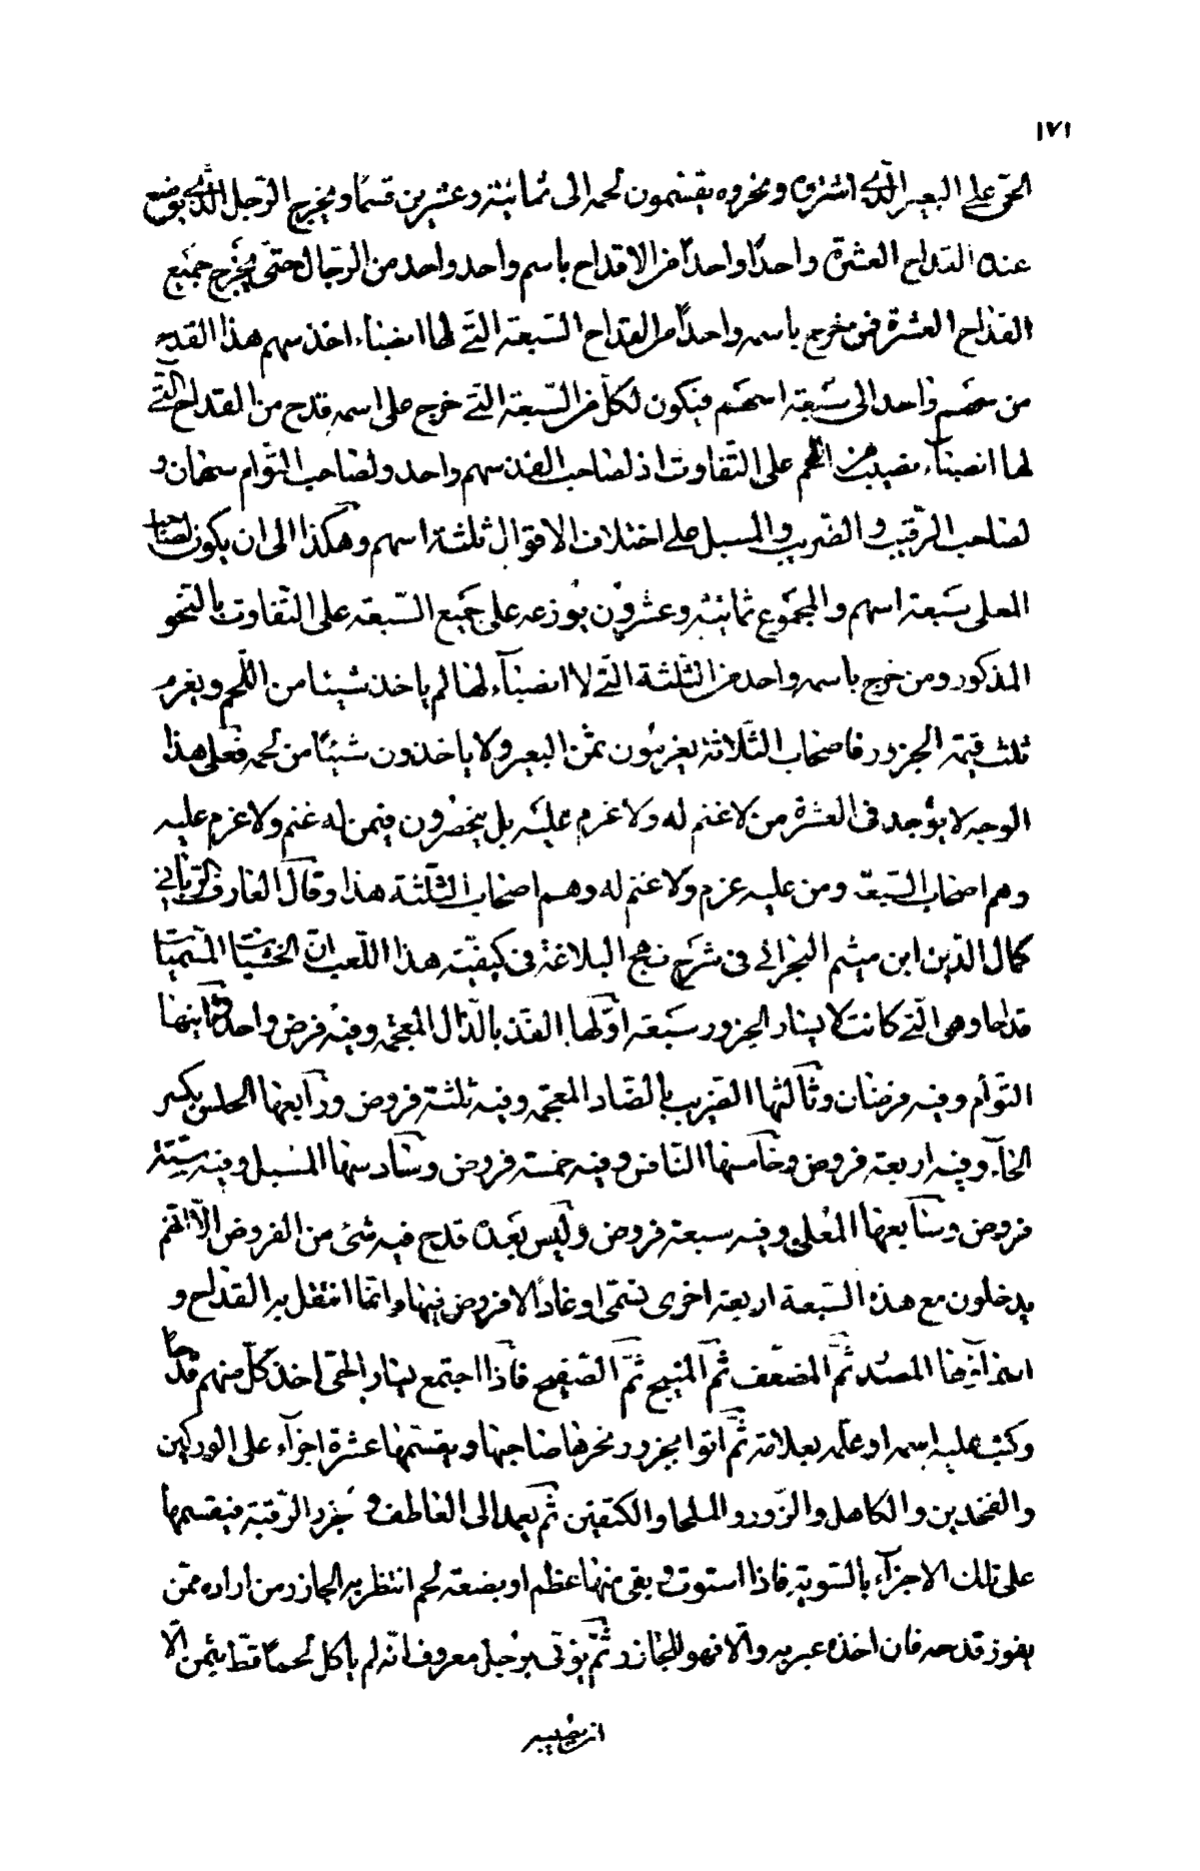 ١٧١
الحى على البعير الذى اشتروه ونخروه يقتسمون لحمه الى ثمانية وعشرين قسمًا ويخرج الرّجل الذى يوضع
عنده القداح العشرة واحدًا واحدًا من الاقداح باسم واحد واحد من الرّجال حتى يخرج جميع
القداح العشرة فمن خرج باسمه واحدًا من القداح السّبعة الّتى لها انصباء اخذ سهم هذا القدح
من سهم واحد الى سبعة اسهم فيكون لكلّ من السّبعة الّتى خرج على اسمه قدح من القداح الّتى
لها انصبآء نصيب من اللّحم على التّفاوت اذ لصاحب الفذ سهم واحد ولصاحب التّوام سهمان و
لصاحب الرّقيب والضريب والمسبل على اختلاف الاقوال ثلثة اسهم وهكذا الى ان يكون لصاحب
المعلى سبعة اسهم والمجموع ثمانية وعشرون يوزعه على جميع السّبعة على التّفاوت بالنحو
المذكور ومن خرج باسمه واحد من الثّلثة الّتى لا انصبآء لها لم ياخذ شيئا من اللّحم ويغرم
ثلث قيمة الجزور فاصحاب الثّلاثة يغرمون ثمن البعير ولا ياخذون شيئًا من لحمه فعلى هذا
الوجه لا يوجد فى العشرة من لا غنم له ولا غرم عليه بل ينحصرون فيمن له غنم ولا غرم عليه
وهم اصحاب السّبعة ومن عليه غرم ولا غنم له وهم اصحاب الثّلثة هذا وقال العارف الرّبانى
كمال الدّين ابن ميثم البحرانى فى شرح نهج البلاغة فى كيفيّة هذا اللّعب انّ الخشبات المسمّيات
قداحا وهى الّتى كانت لايسار الجزور سبعة اوّلها الفذ بالذّال المعجمة وفيه فرض واحد وثانيها
التوأم وفيه فرضان وثالثها الضريب بالضّاد المعجمة وفيه ثلثة فروض ورابعها الحلس بكسر
الحآء وفيه اربعة فروض وخامسها النّافس وفيه خمسة فروض وسادسها المسبل وفيه ستّة
فروض وسابعها المعلى وفيه سبعة فروض وليس بعده قدح فيه شئ من الفروض الّا انّهم
يدخلون مع هذه السّبعة اربعة اخرى تسمّى اوغادًا لا فروض فيها وانّما اثقل بها القداح و
اسمآءها المصدر ثمّ المضعّف ثمّ المنيح ثمّ الصّفيح فاذا اجتمع ايسار الحىّ اخذ كلّ منهم قدحًا
وكتب عليه اسمه او علّمه بعلامة ثمّ اتوا بجزور فنحرها صاحبها ويقسّمها عشرة اجزآء على الوركين
والفخذين والكاهل والزّور والملحا والكتفين ثمّ يعمد الى الطاطف و خرز الرّقبة فيقسمها
على تلك الاجزآء بالسّوية فاذا استوت وبقى منها عظم او بضعة لحم انتظر به الجازر من اراده ممّن
يفوز قدحه فان اخذه عير به والّا فهو للجازر ثمّ يؤتى برجل معروف انّه لم ياكل لحمًا قطّ بثمن الّا